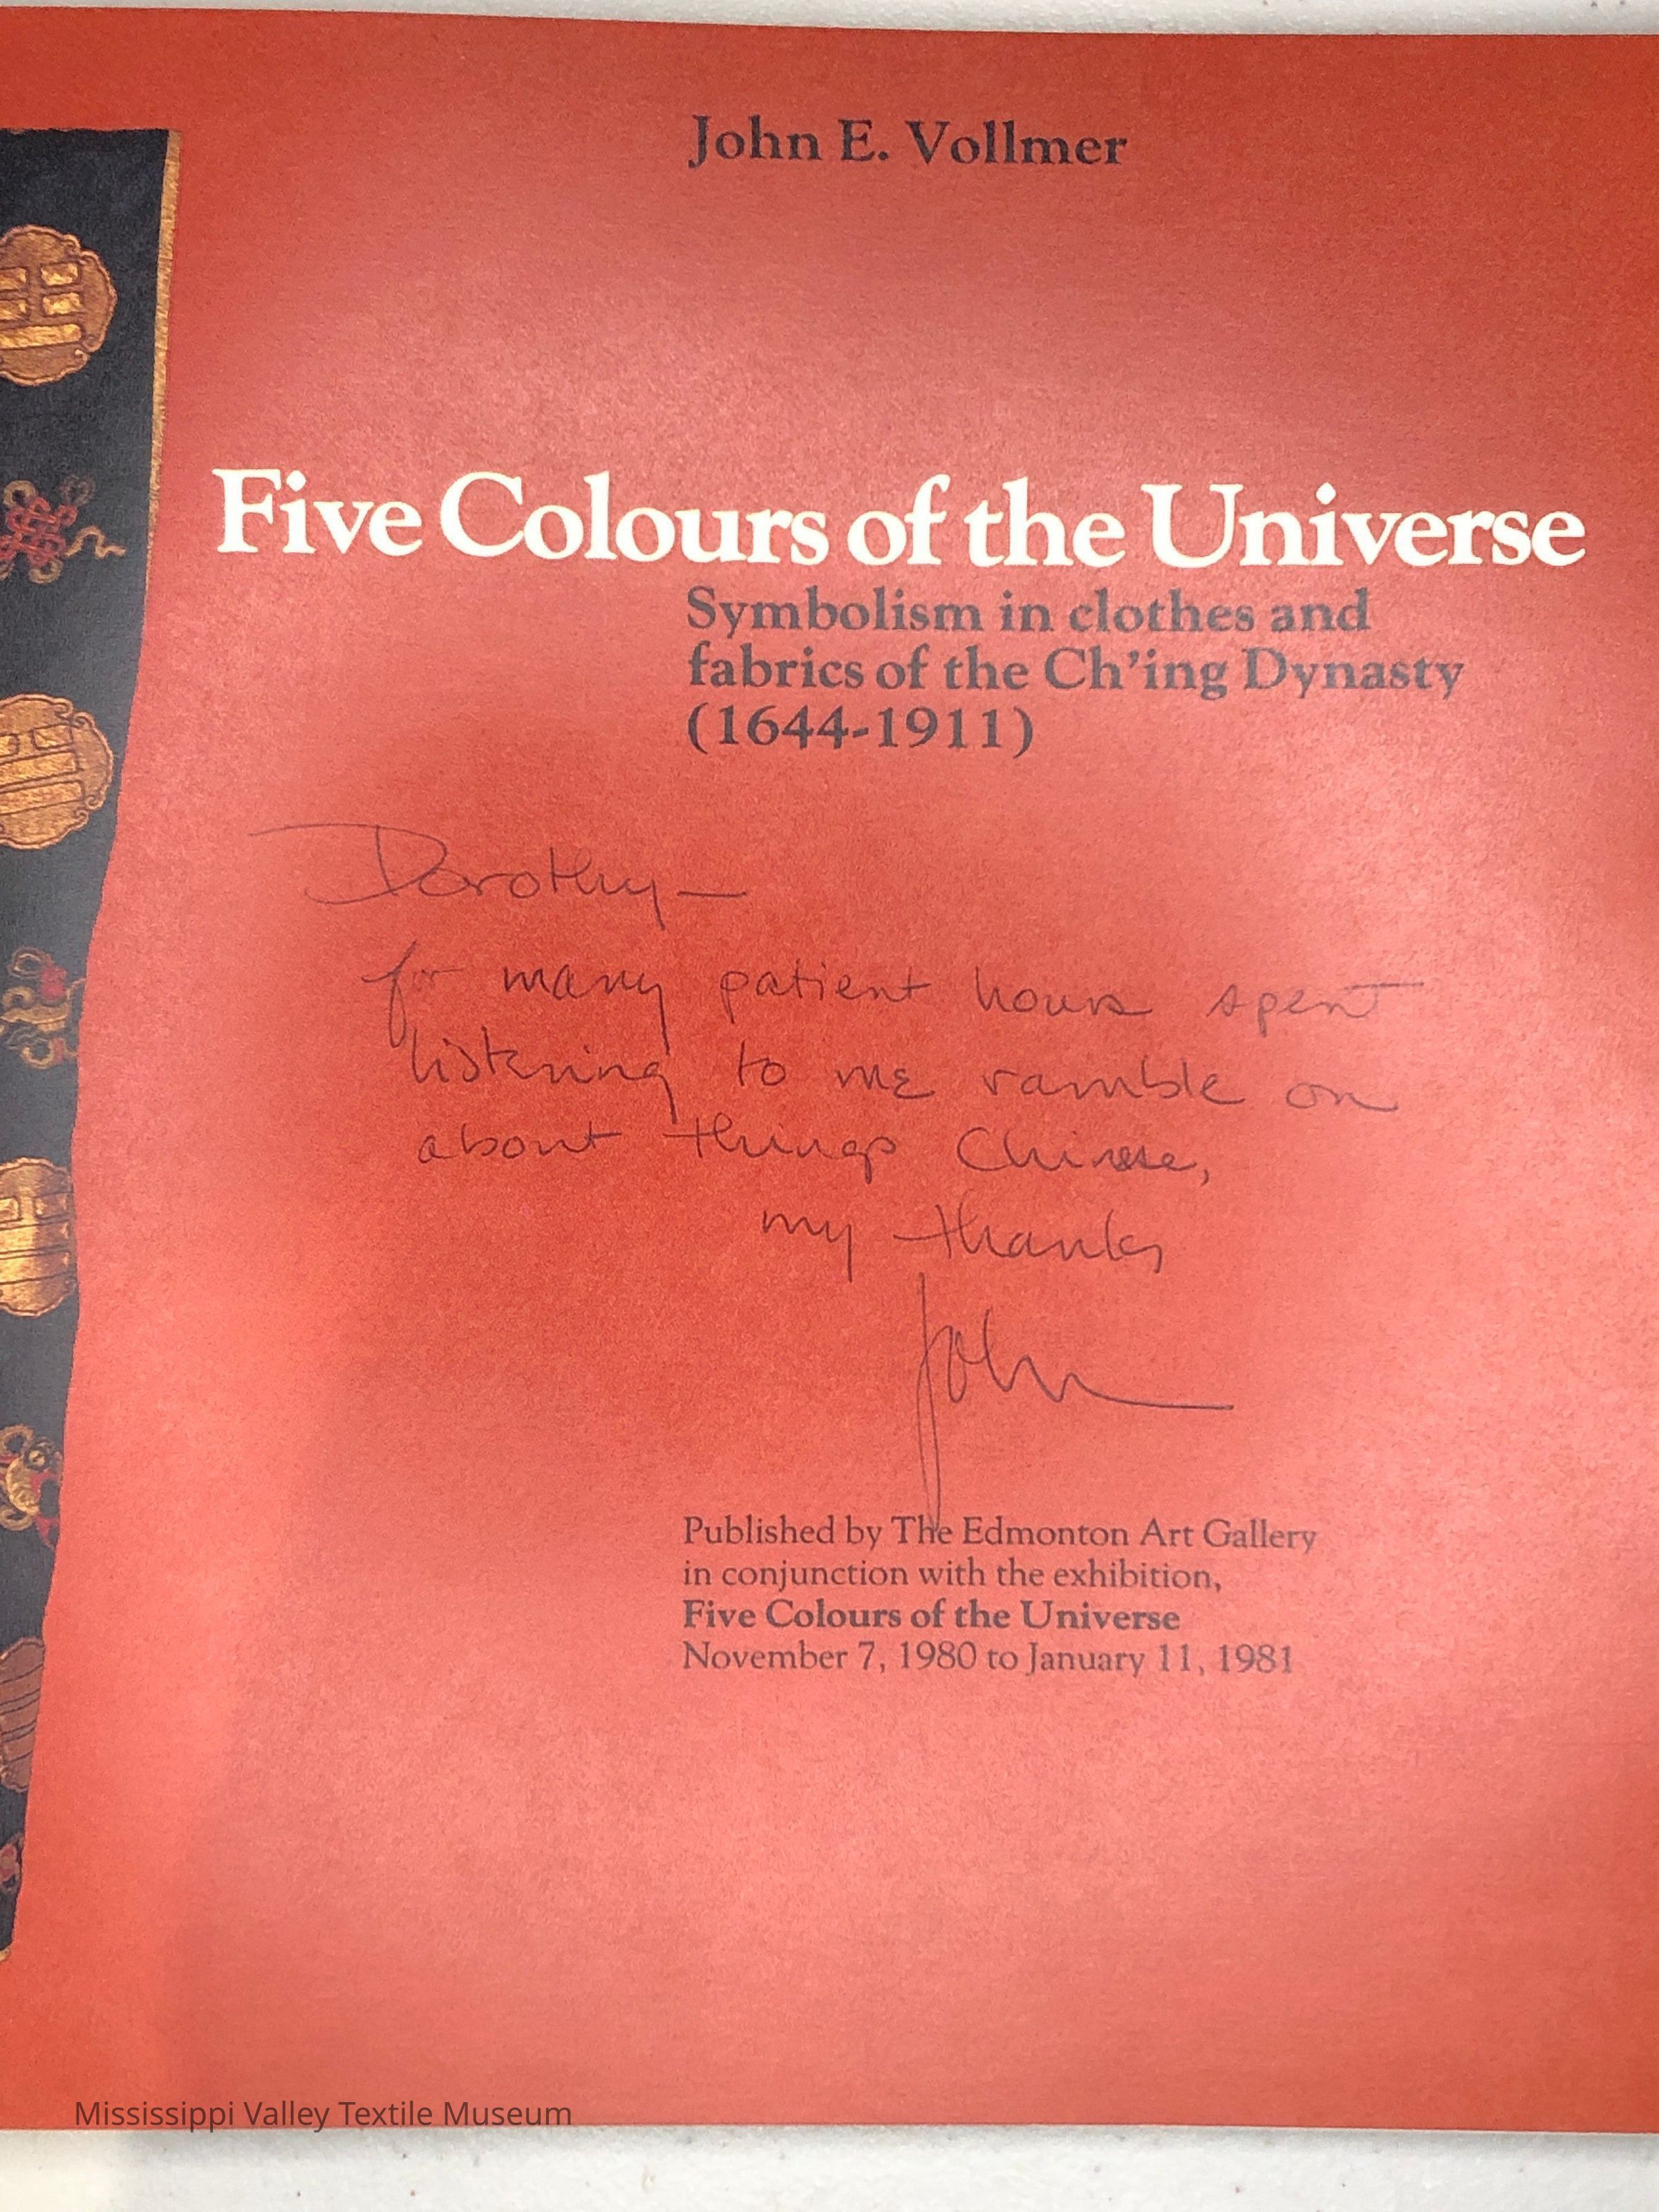 John E. Vollmer
Five Colours of the Universe
Symbolism in clothes and
fabrics of the Ch'ing Dynasty
(1644-1911)
Dorothy—
for many patient hours spent
listening to me ramble on
about things Chinese,
my thanks
John
Published by The Edmonton Art Gallery
in conjunction with the exhibition,
Five Colours of the Universe
November 7, 1980 to January 11, 1981
Mississippi Valley Textile Museum